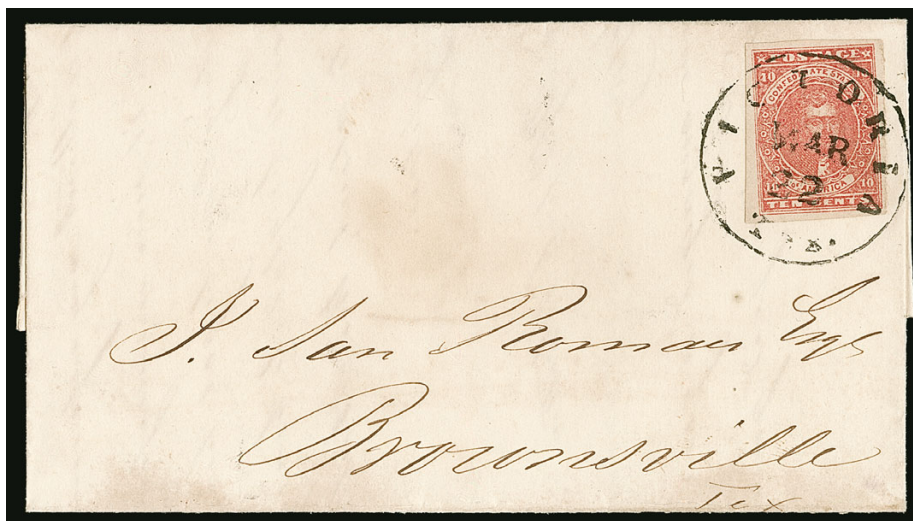 POSTAGE
10
CONFEDERATE STATES
OF AMERICA
10 10
TEN CENTS
VICTORIA
MAR
22
TEX.
J. San Roman Esqr
Brownsville
Tex